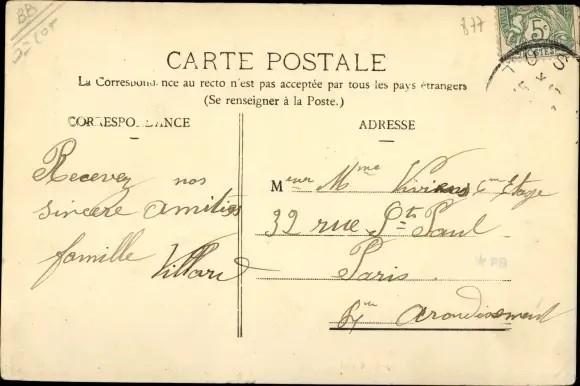 BB
877
5c
CARTE POSTALE
La Correspondance au recto n'est pas acceptée par tous les pays étrangers
(Se renseigner à la Poste.)
CORRESPONDANCE
ADRESSE
Recevez nos
sincère amitiés
famille Villard
Meur Mme Viviens 4me Étage
32 rue St Paul
Paris
arondissement
*PB